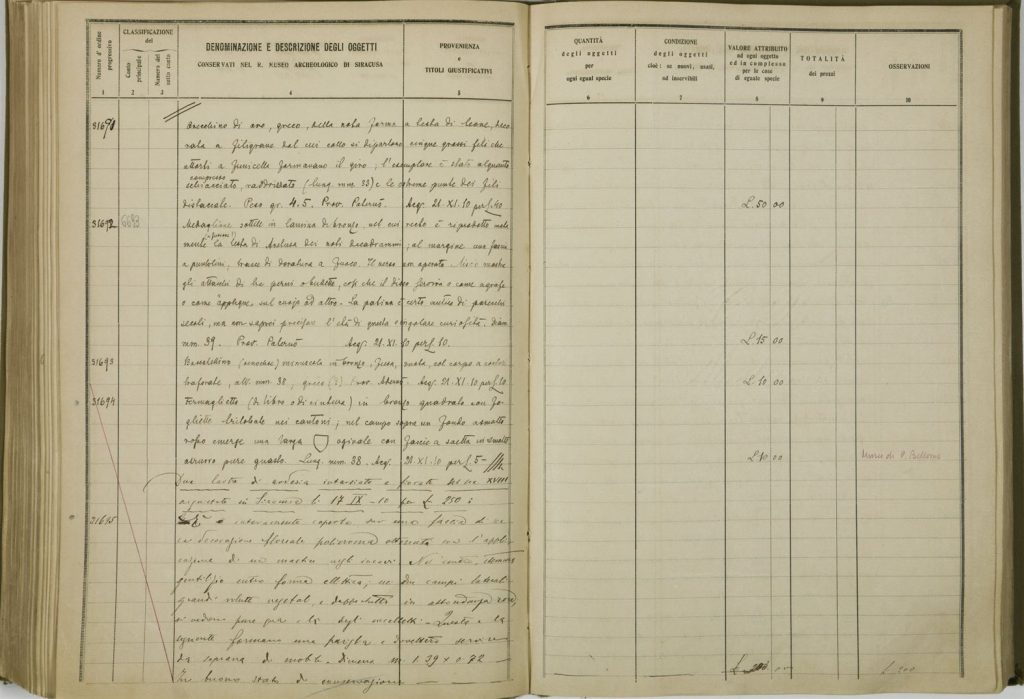 Numero d'ordine progressivo
CLASSIFICAZIONE
del
Conto principale
Numero del sotto conto
DENOMINAZIONE E DESCRIZIONE DEGLI OGGETTI
CONSERVATI NEL R. MUSEO ARCHEOLOGICO DI SIRACUSA
PROVENIENZA
e
TITOLI GIUSTIFICATIVI
1 2 3 4 5
31691 Orecchino di oro, greco, della nota forma a testa di leone, deco
rata a filigrana dal cui collo si dipartono cinque grossi fili che
attorti a funicella formavano il giro; l'esemplare è stato alquanto
compresso
schiacciato, raddrizzato (lung. mm. 33) e le estreme punte dei fili
distaccate. Peso gr. 4.5. Prov. Paternò. Acq. 21.XI.10 per £. 40
31692 6693 Medaglione sottile in lamina di bronzo, nel cui recto è riprodotta male
mente la testa di Aretusa dei noti decadrammi; al margine una
a puntolini, tracce di doratura a fuoco. Il verso non operato liscio mostra
gli attacchi di tre perni o bullette, così che il disco serviva o come
o come applique sul cuoio od altro. La patina è certo antica di parecchi
secoli, ma non saprei precisare l'età di questa singolare curiosità. Diam.
mm. 39. Prov. Paternò Acq. 21.XI.10 per £. 10.
31693 (oenochoe) minuscolo in bronzo, fuso, col corpo a
traforato, alt. mm. 38, greco (?) Prov. Adernò. Acq. 21.XI.10 per £. 10
31694 Fermaglietto (di libro o di cintura) in bronzo quadrato con fo
gliette trilobate nei cantoni; nel campo sopra un fondo smalto
rosso emerge una targa ogivale con fascie a saetta in smalto
azzurro pure guasto. Lung. mm. 38. Acq. 21.XI.10 per £. 5-
Due lastre di ardesia intarsiate e del sec. XVIII
acquistate in Siracusa li 17 IX-10 per £. 250:
31695 è interamente coperta su una faccia di
ca decorazione floreale policroma ottenuta con l'appli
cazione di un mastice negli incavi. Nel centro, stemma
gentilizio entro forma ellittica, nei due campi laterali
grandi volute vegetali, e dappertutto in abbondanza rose,
si vedono pure qua e là degli uccelletti. Questa e la
seguente formano una pariglia e dovettero servire
da soprana di mobile. Dimens. m. 1.39 x 0.72
In buono stato di conservazione
QUANTITÀ
degli oggetti
per
ogni egual specie
CONDIZIONE
degli oggetti
cioè: se nuovi, usati,
od inservibili
VALORE ATTRIBUITO
ad ogni oggetto
ed in complesso
per le cose
di eguale specie
TOTALITÀ
dei prezzi
OSSERVAZIONI
6 7 8 9 10
£. 50 00
£. 15 00
£. 10 00
£. 10 00 Museo di P. Bellomo
£. 200